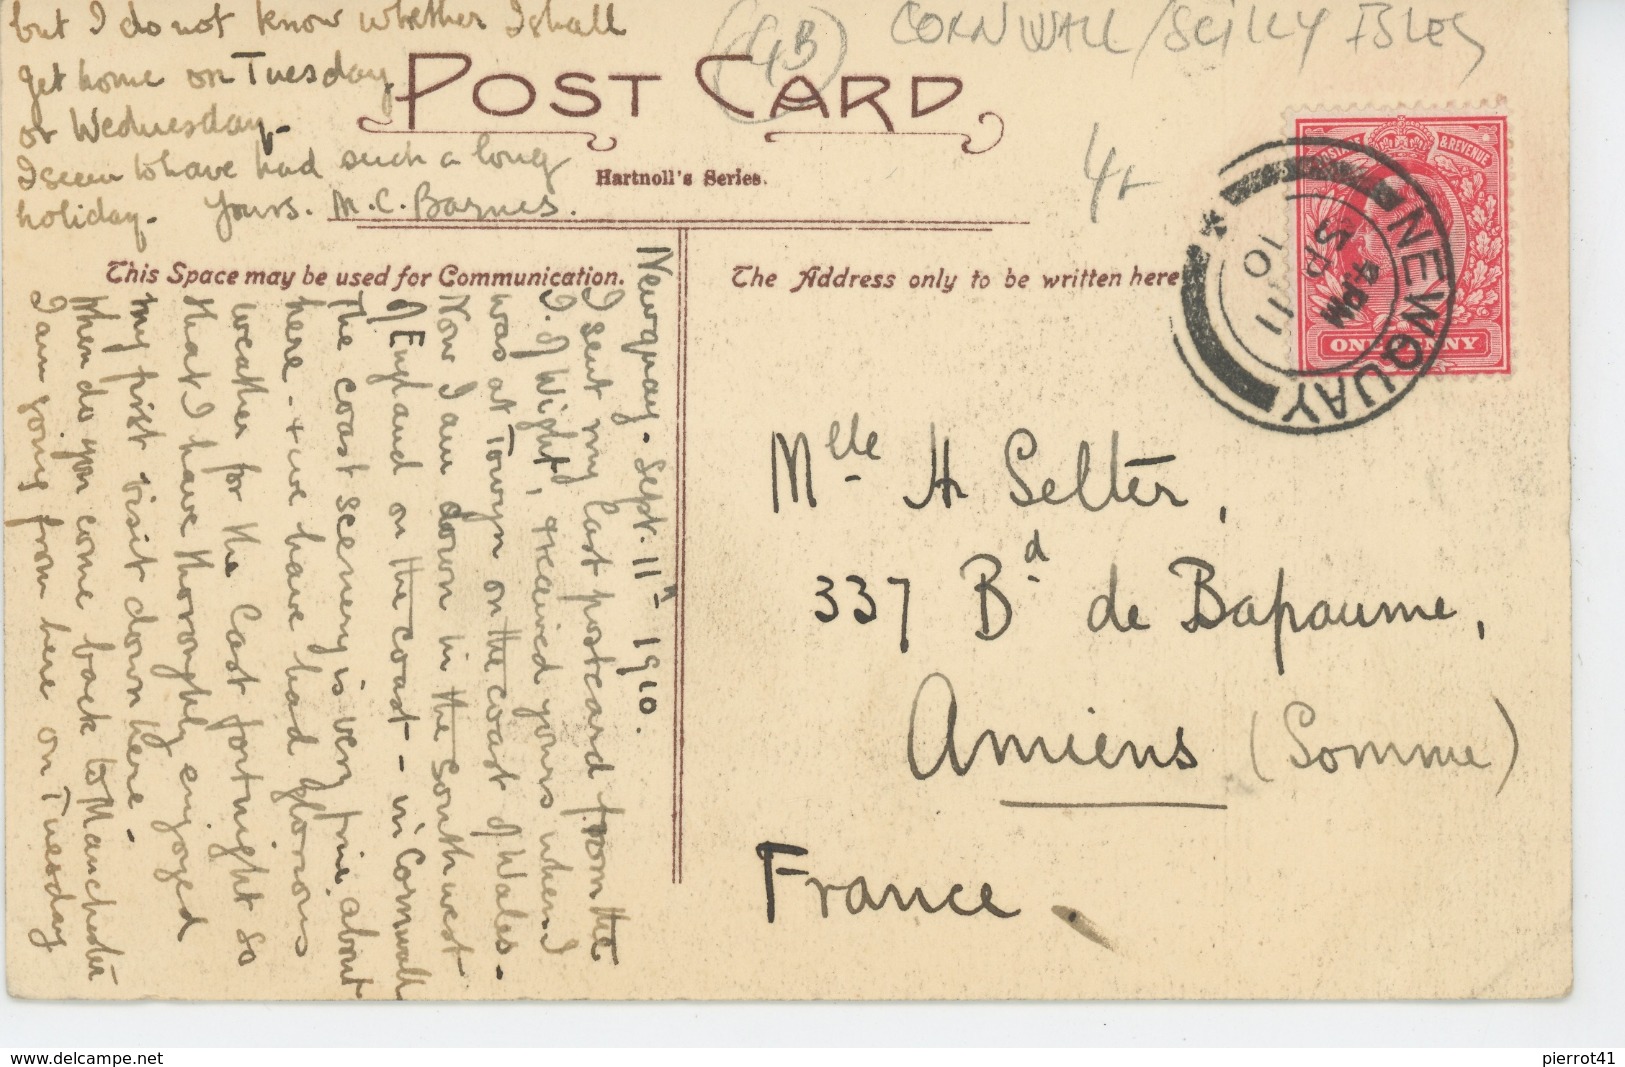 but I do not know whether I shall
get home on Tuesday
or Wednesday.
I seem to have had such a long
holiday. Yours. M. C. Barnes.
(GB) CORNWALL / SCILLY ISLES
4
POST CARD
Hartnoll's Series.
This Space may be used for Communication.
The Address only to be written here
POSTAGE & REVENUE
ONE PENNY
NEWQUAY
4 PM
SP 11
10
Newquay. Sept. 11th 1910.
I sent my last postcard from the
I. of Wight, & received yours when I
was at Towyn on the coast of Wales.
Now I am down in the South west
of England on the coast - in Cornwall
The coast scenery is very fine about
here - & we have had glorious
weather for the last fortnight so
that I have thoroughly enjoyed
my first visit down here.
When do you come back to Manchester
I am going from here on Tuesday
Mlle H Selter,
337 Bd de Bapaume,
Amiens (Somme)
France.
www.delcampe.net
pierrot41